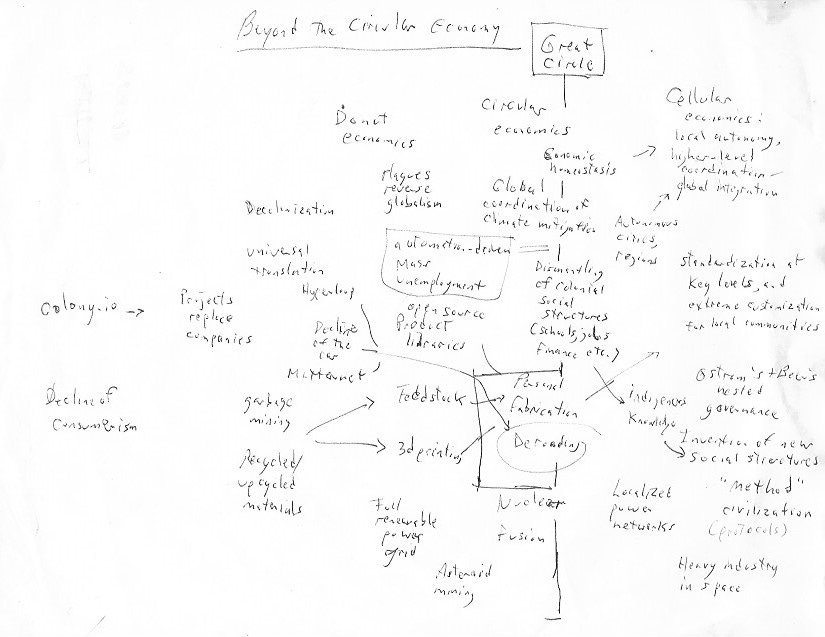 Beyond The Circular Economy
Great
Circle
Donut
economics
Circular
economics
Cellular
economics:
local autonomy,
higher-level
coordination -
global integration
Economic
homeostasis
Plagues
reverse
globalism
Global
coordination of
climate mitigation
Decolonization
Autonomous
cities,
regions
automation-driven
mass
unemployment
universal
translation
Hyperloop
Dismantling
of colonial
social
structures
(schools, jobs
finance etc.)
standardization at
key levels, and
extreme customization
for local communities
Colony.io →
Projects
replace
companies
open source
Product
libraries
Decline
of the
car
Matternet
Decline of
Consumerism
garbage
mining
Feedstock
Personal
Fabrication
Indigenous
Knowledge
Ostrom's + Beer's
nested
governance
3d printing
Deroading
Invention of new
social structures
Recycled/
upcycled
materials
Full
renewable
power
grid
Nuclear
Fusion
Localized
power
networks
"method"
civilization
(protocols)
Asteroid
mining
Heavy industry
in space